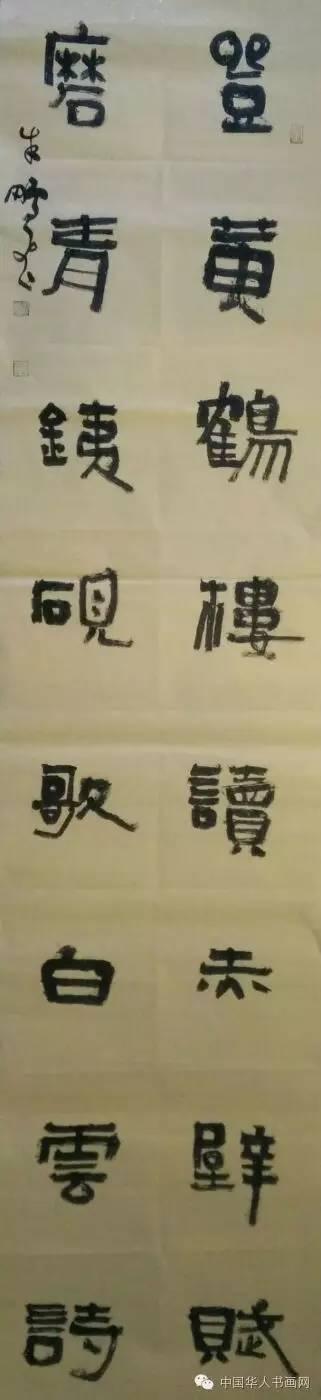 登黄鶴樓讀赤壁賦
磨青鐵硯歌白雲詩
中国华人书画网